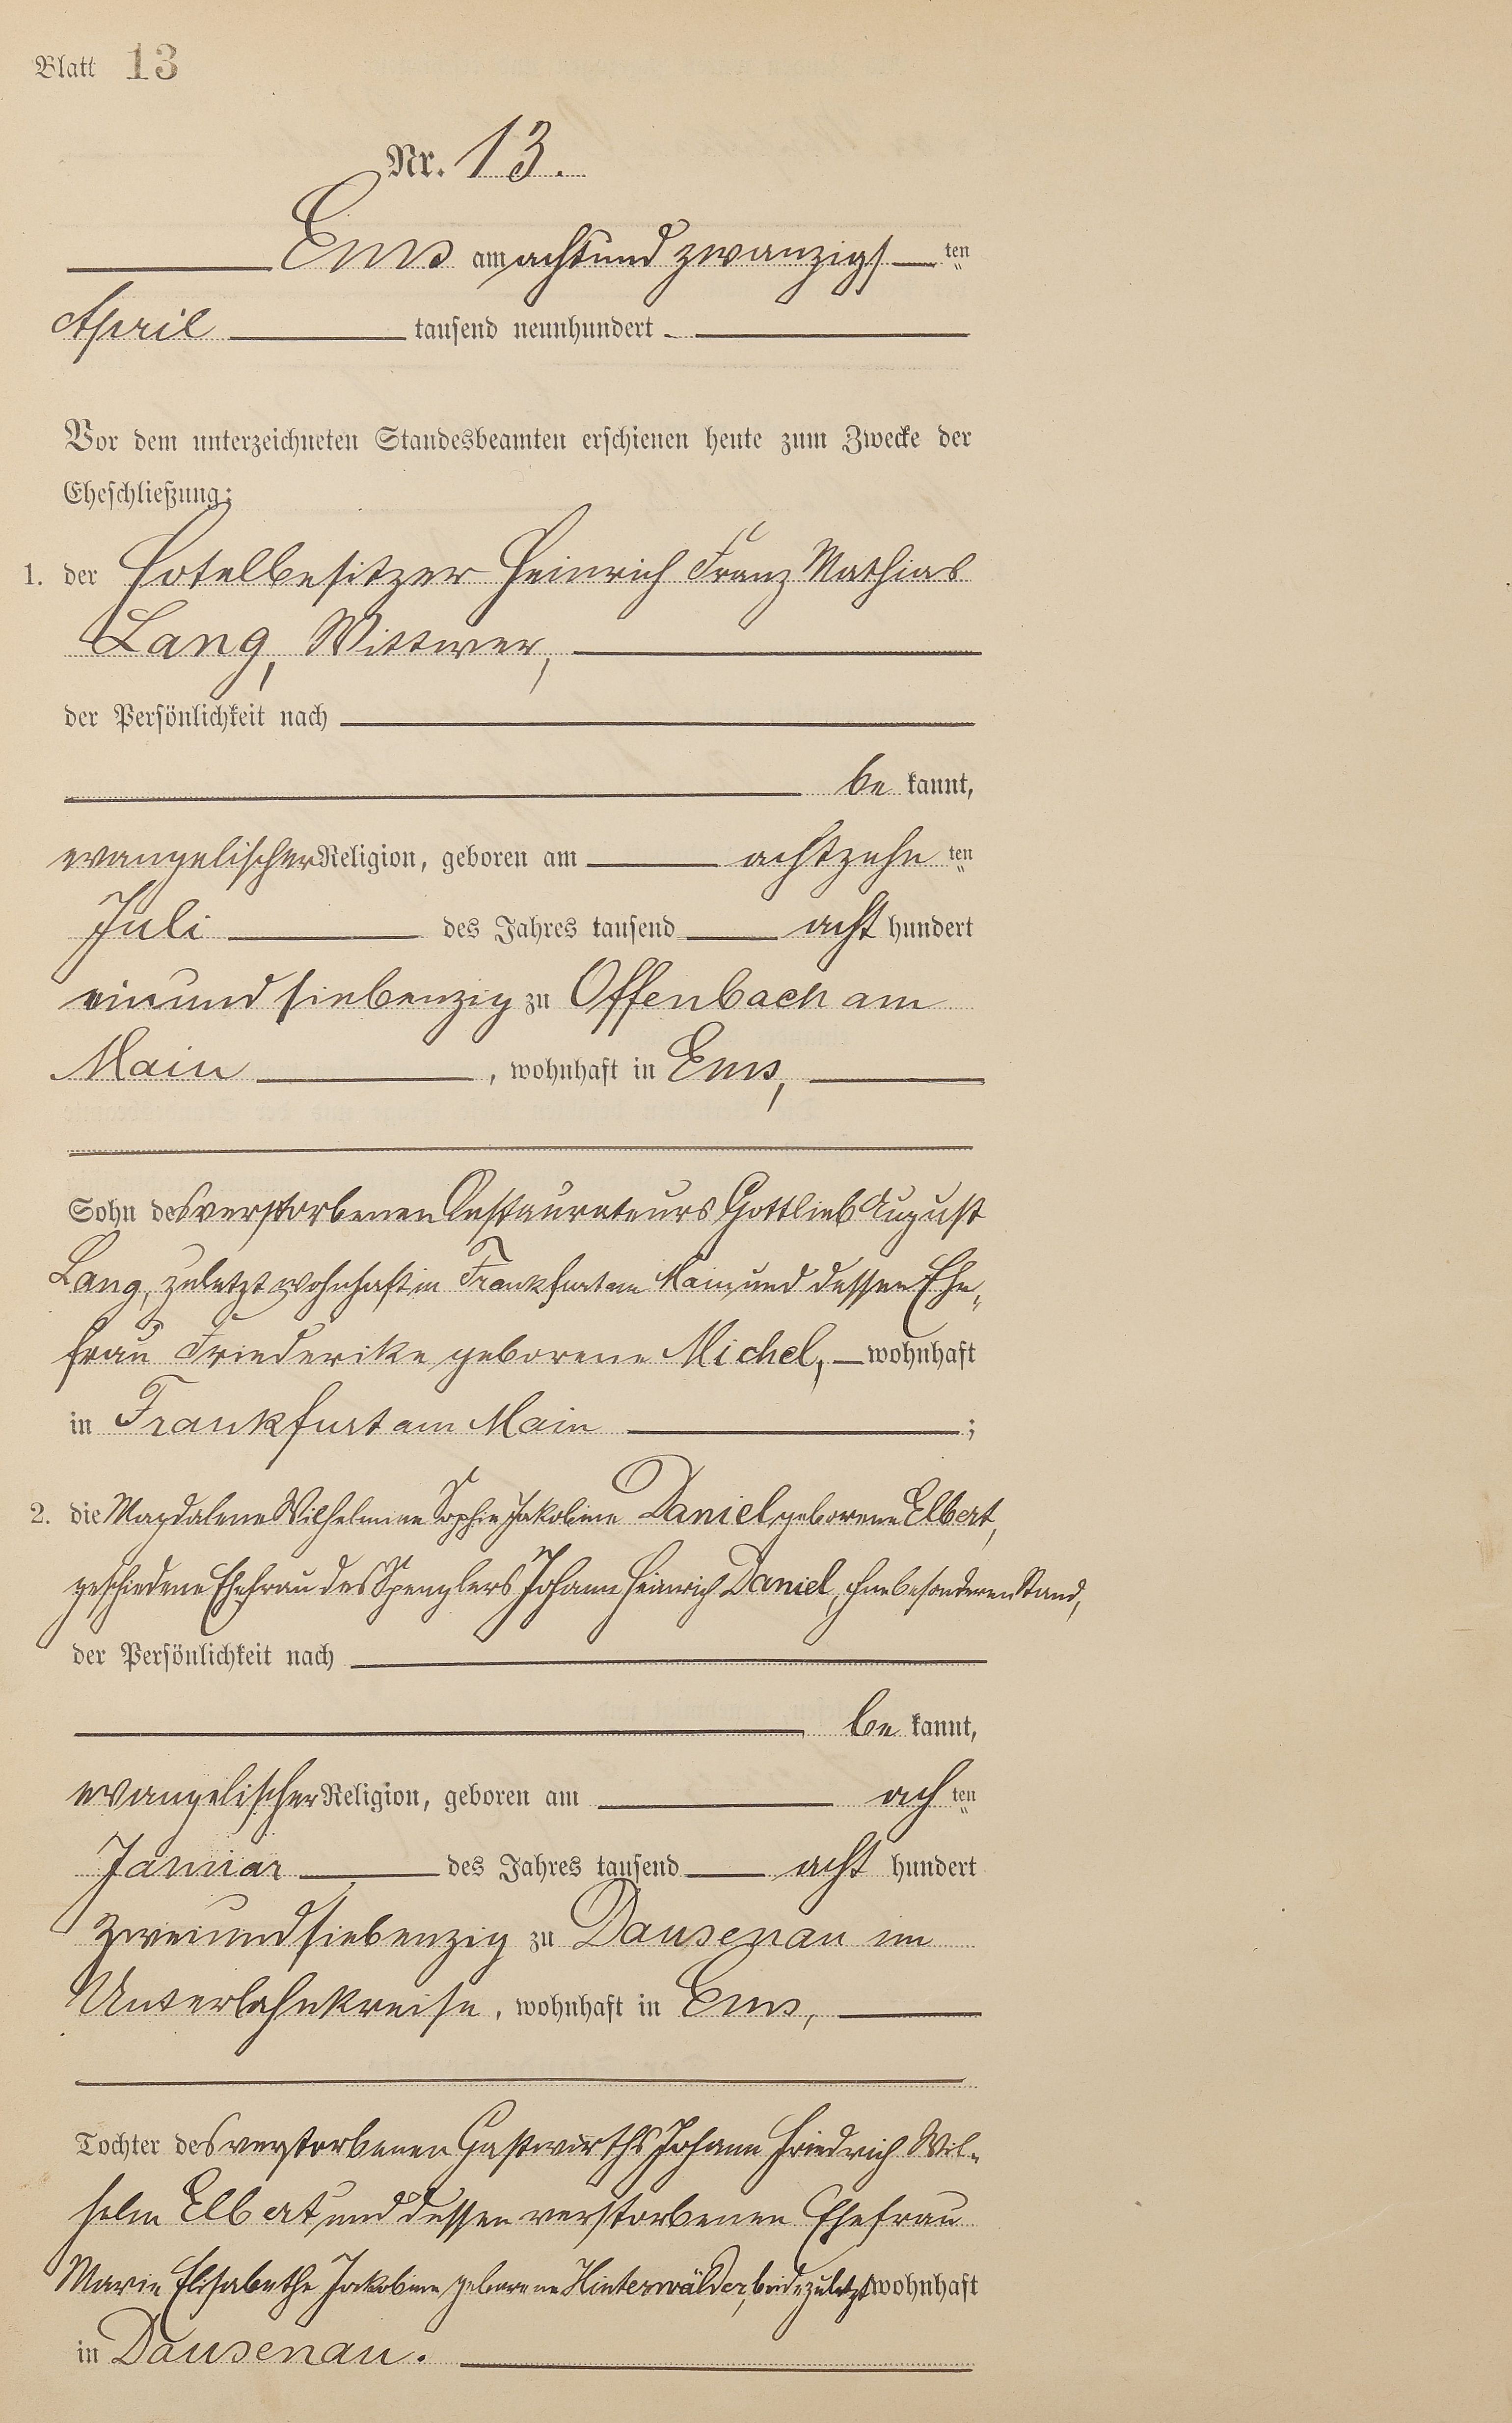 Blatt 13
Nr. 13.
Ems am achtund zwanzigsten
April tausend neunhundert
Vor dem unterzeichneten Standesbeamten erschienen heute zum Zwecke der
Eheschließung:
1. der Hotelbesitzer Heinrich Franz Mathias
Lang, Wittwer,
der Persönlichkeit nach
be kannt,
evangelischer Religion, geboren am achtzehn ten
Juli des Jahres tausend acht hundert
einund siebenzig zu Offenbach am
Main, wohnhaft in Ems,
Sohn des verstorbenen Restaurateurs Gottlieb August
Lang, zuletzt wohnhaft in Frankfurt am Main und dessen Ehe„
frau Friederike geborene Michel, wohnhaft
in Frankfurt am Main ;
2. die Magdalene Wilhelmine Sophie Jakobine Daniel geborene Elbert,
geschiedene Ehefrau des Spenglers Johann Heinrich Daniel, ohne besonderen Stand,
der Persönlichkeit nach
be kannt,
evangelischer Religion, geboren am ach ten
Januar des Jahres tausend acht hundert
zweiundsiebenzig zu Dausenau im
Unterlahnkreise, wohnhaft in Ems,
Tochter des verstorbenen Gastwirths Johann Friedrich Wil„
helm Elbert und dessen verstorbenen Ehefrau
Marie Elisabethe Jakobine geborene Hinterwälder, beide zuletzt wohnhaft
in Dausenau.